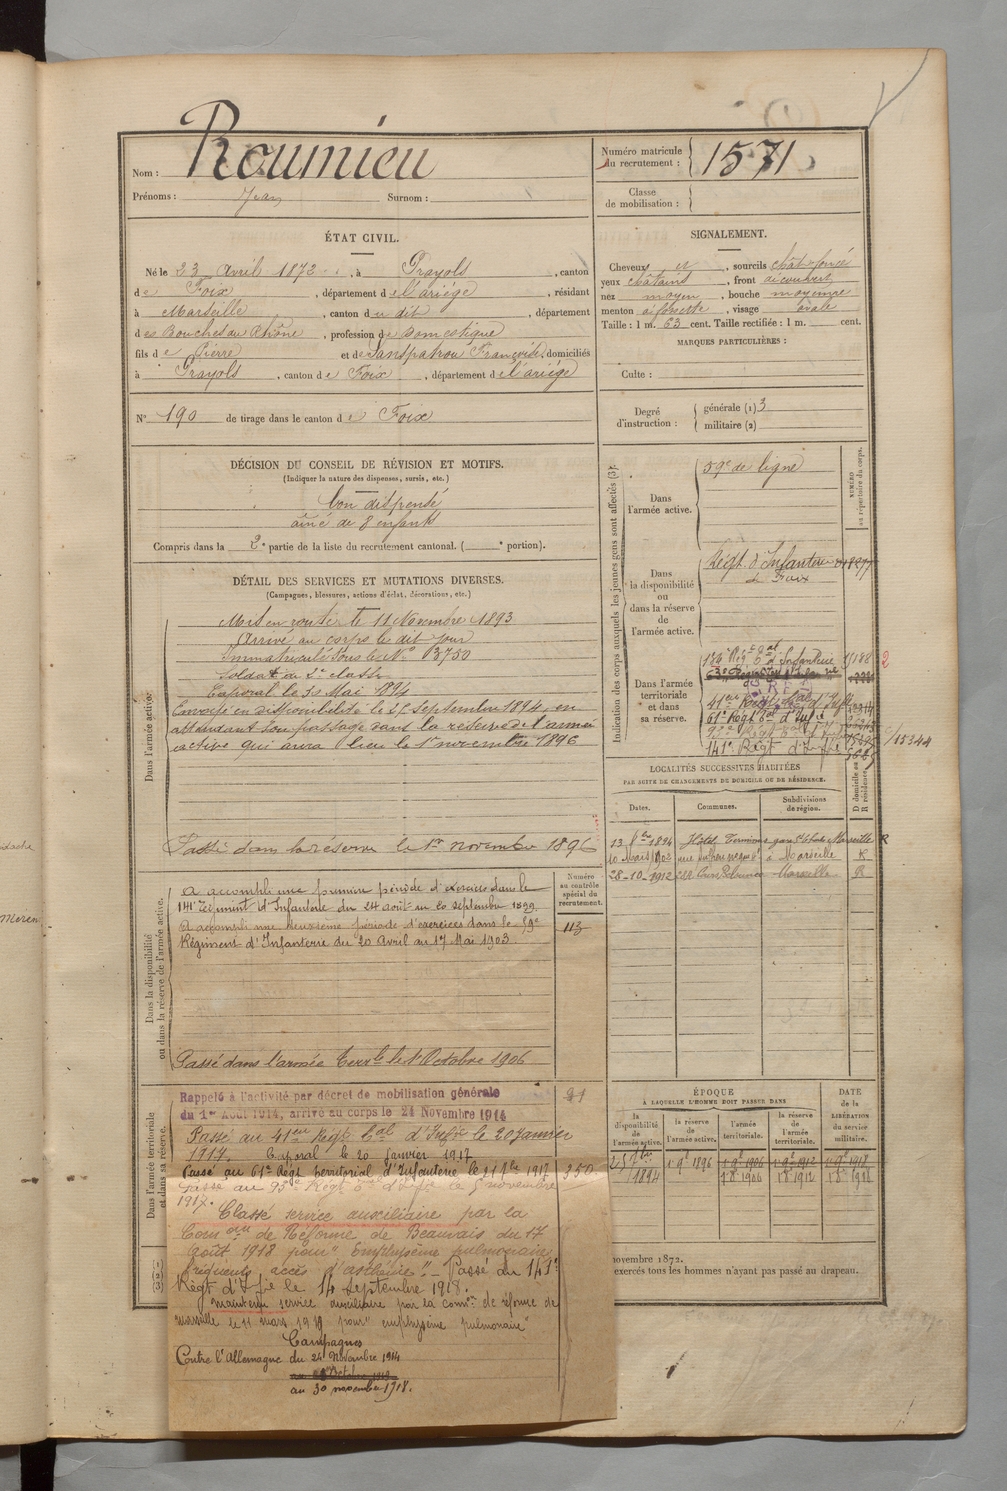 Nom : Roumieu
Prénoms : Jean Surnom :
Numéro matricule du recrutement : 1571
Classe de mobilisation :
ÉTAT CIVIL.
Né le 23 Avril 1872, à Prayols, canton
de Foix, département de l'ariége, résidant
à Marseille, canton du dit, département
des Bouches du Rhône, profession de Domestique
fils de Pierre et de Sanspatrou Françoise, domiciliés
à Prayols, canton de Foix, département de l'ariége
N° 190 de tirage dans le canton de Foix
SIGNALEMENT.
Cheveux et, sourcils chât. foncé
yeux châtains, front découvert
nez moyen, bouche moyenne
menton à fossette, visage ovale
Taille : 1 m. 63 cent. Taille rectifiée : 1 m. cent.
MARQUES PARTICULIÈRES :
Culte :
Degré d'instruction : générale (1) 3
militaire (2)
DÉCISION DU CONSEIL DE RÉVISION ET MOTIFS.
(Indiquer la nature des dispenses, sursis, etc.)
bon dispensé
aîné de 8 enfants
Compris dans la 2e partie de la liste du recrutement cantonal. ( e portion).
DÉTAIL DES SERVICES ET MUTATIONS DIVERSES.
(Campagnes, blessures, actions d'éclat, décorations, etc.)
Dans l'armée active.
Mis en route le 11 Novembre 1893
Arrivé au corps le dit jour
Immatriculé sous le N° 3750
Soldat de 2e classe
Caporal le 31 Mai 1894
Envoyé en disponibilité le 25 Septembre 1894, en
attendant son passage dans la réserve de l'armée
active qui aura lieu le 1er novembre 1896
Passé dans la réserve le 1er novembre 1896
Indication des corps auxquels les jeunes gens sont affectés (3).
NUMÉRO au répertoire du corps.
Dans l'armée active.
59e de ligne
Dans la disponibilité ou dans la réserve de l'armée active.
Régt. d'Infanterie
de Foix
Dans l'armée territoriale et dans sa réserve.
41eme Régt tal d'Inftie
61e Régt tal d'Inftie
93e Régt tal d'Inf
141e Régt d'Inftie
15344
LOCALITÉS SUCCESSIVES HABITÉES
PAR SUITE DE CHANGEMENTS DE DOMICILE OU DE RÉSIDENCE.
Dates. Communes. Subdivisions de région. D domicile ou R résidence.
13 8bre 1894 Hôtel Terminus gare St Charles Marseille R
10 Mars 1902 à Marseille R
28-10-1912 Marseille R
Dans la disponibilité ou dans la réserve de l'armée active.
Numéro au contrôle spécial du recrutement.
A accompli une première période d'exercices dans le
141e Régiment d'Infanterie du 24 août au 20 septembre 1899.
A accompli une deuxième période d'exercices dans le 59e
Régiment d'Infanterie du 20 Avril au 17 Mai 1903
113
Passé dans l'armée terrle le 1 Octobre 1906
Dans l'armée territoriale et dans sa réserve.
Rappelé à l'activité par décret de mobilisation générale
du 1er Août 1914, arrivé au corps le 24 Novembre 1914
Passé au 41eme Régt tal d'Infie le 20 Janvier
1917. Caporal le 20 janvier 1917
Passé au 61e Régt territorial d'Infanterie le 21 7bre 1917
350
Passé au 93e Régt tal d'Infie le 5 novembre
1917.
Classé service auxiliaire par la
Comon de Réforme de Beauvais du 17
Août 1918 pour "Emphysème pulmonaire
fréquents accès d'asthénie". Passé au 141e
Régt d'Inftie le 14 septembre 1918.
Maintenu service auxiliaire par la comon de réforme de
Marseille le 11 mars 1919 pour "emphysème pulmonaire"
Campagnes
Contre l'Allemagne du 24 Novembre 1914
au 30 novembre 1918.
ÉPOQUE
À LAQUELLE L'HOMME DOIT PASSER DANS
la disponibilité de l'armée active. la réserve de l'armée active. l'armée territoriale. la réserve de l'armée territoriale.
DATE de la LIBÉRATION DU service militaire.
25 7bre 1894 1 9e 1896 1 9e 1906 1 9e 1912 1 9e 1918
1 8e 1906 1 8e 1912 1 8e 1918
novembre 1872.
exercés tous les hommes n'ayant pas passé au drapeau.